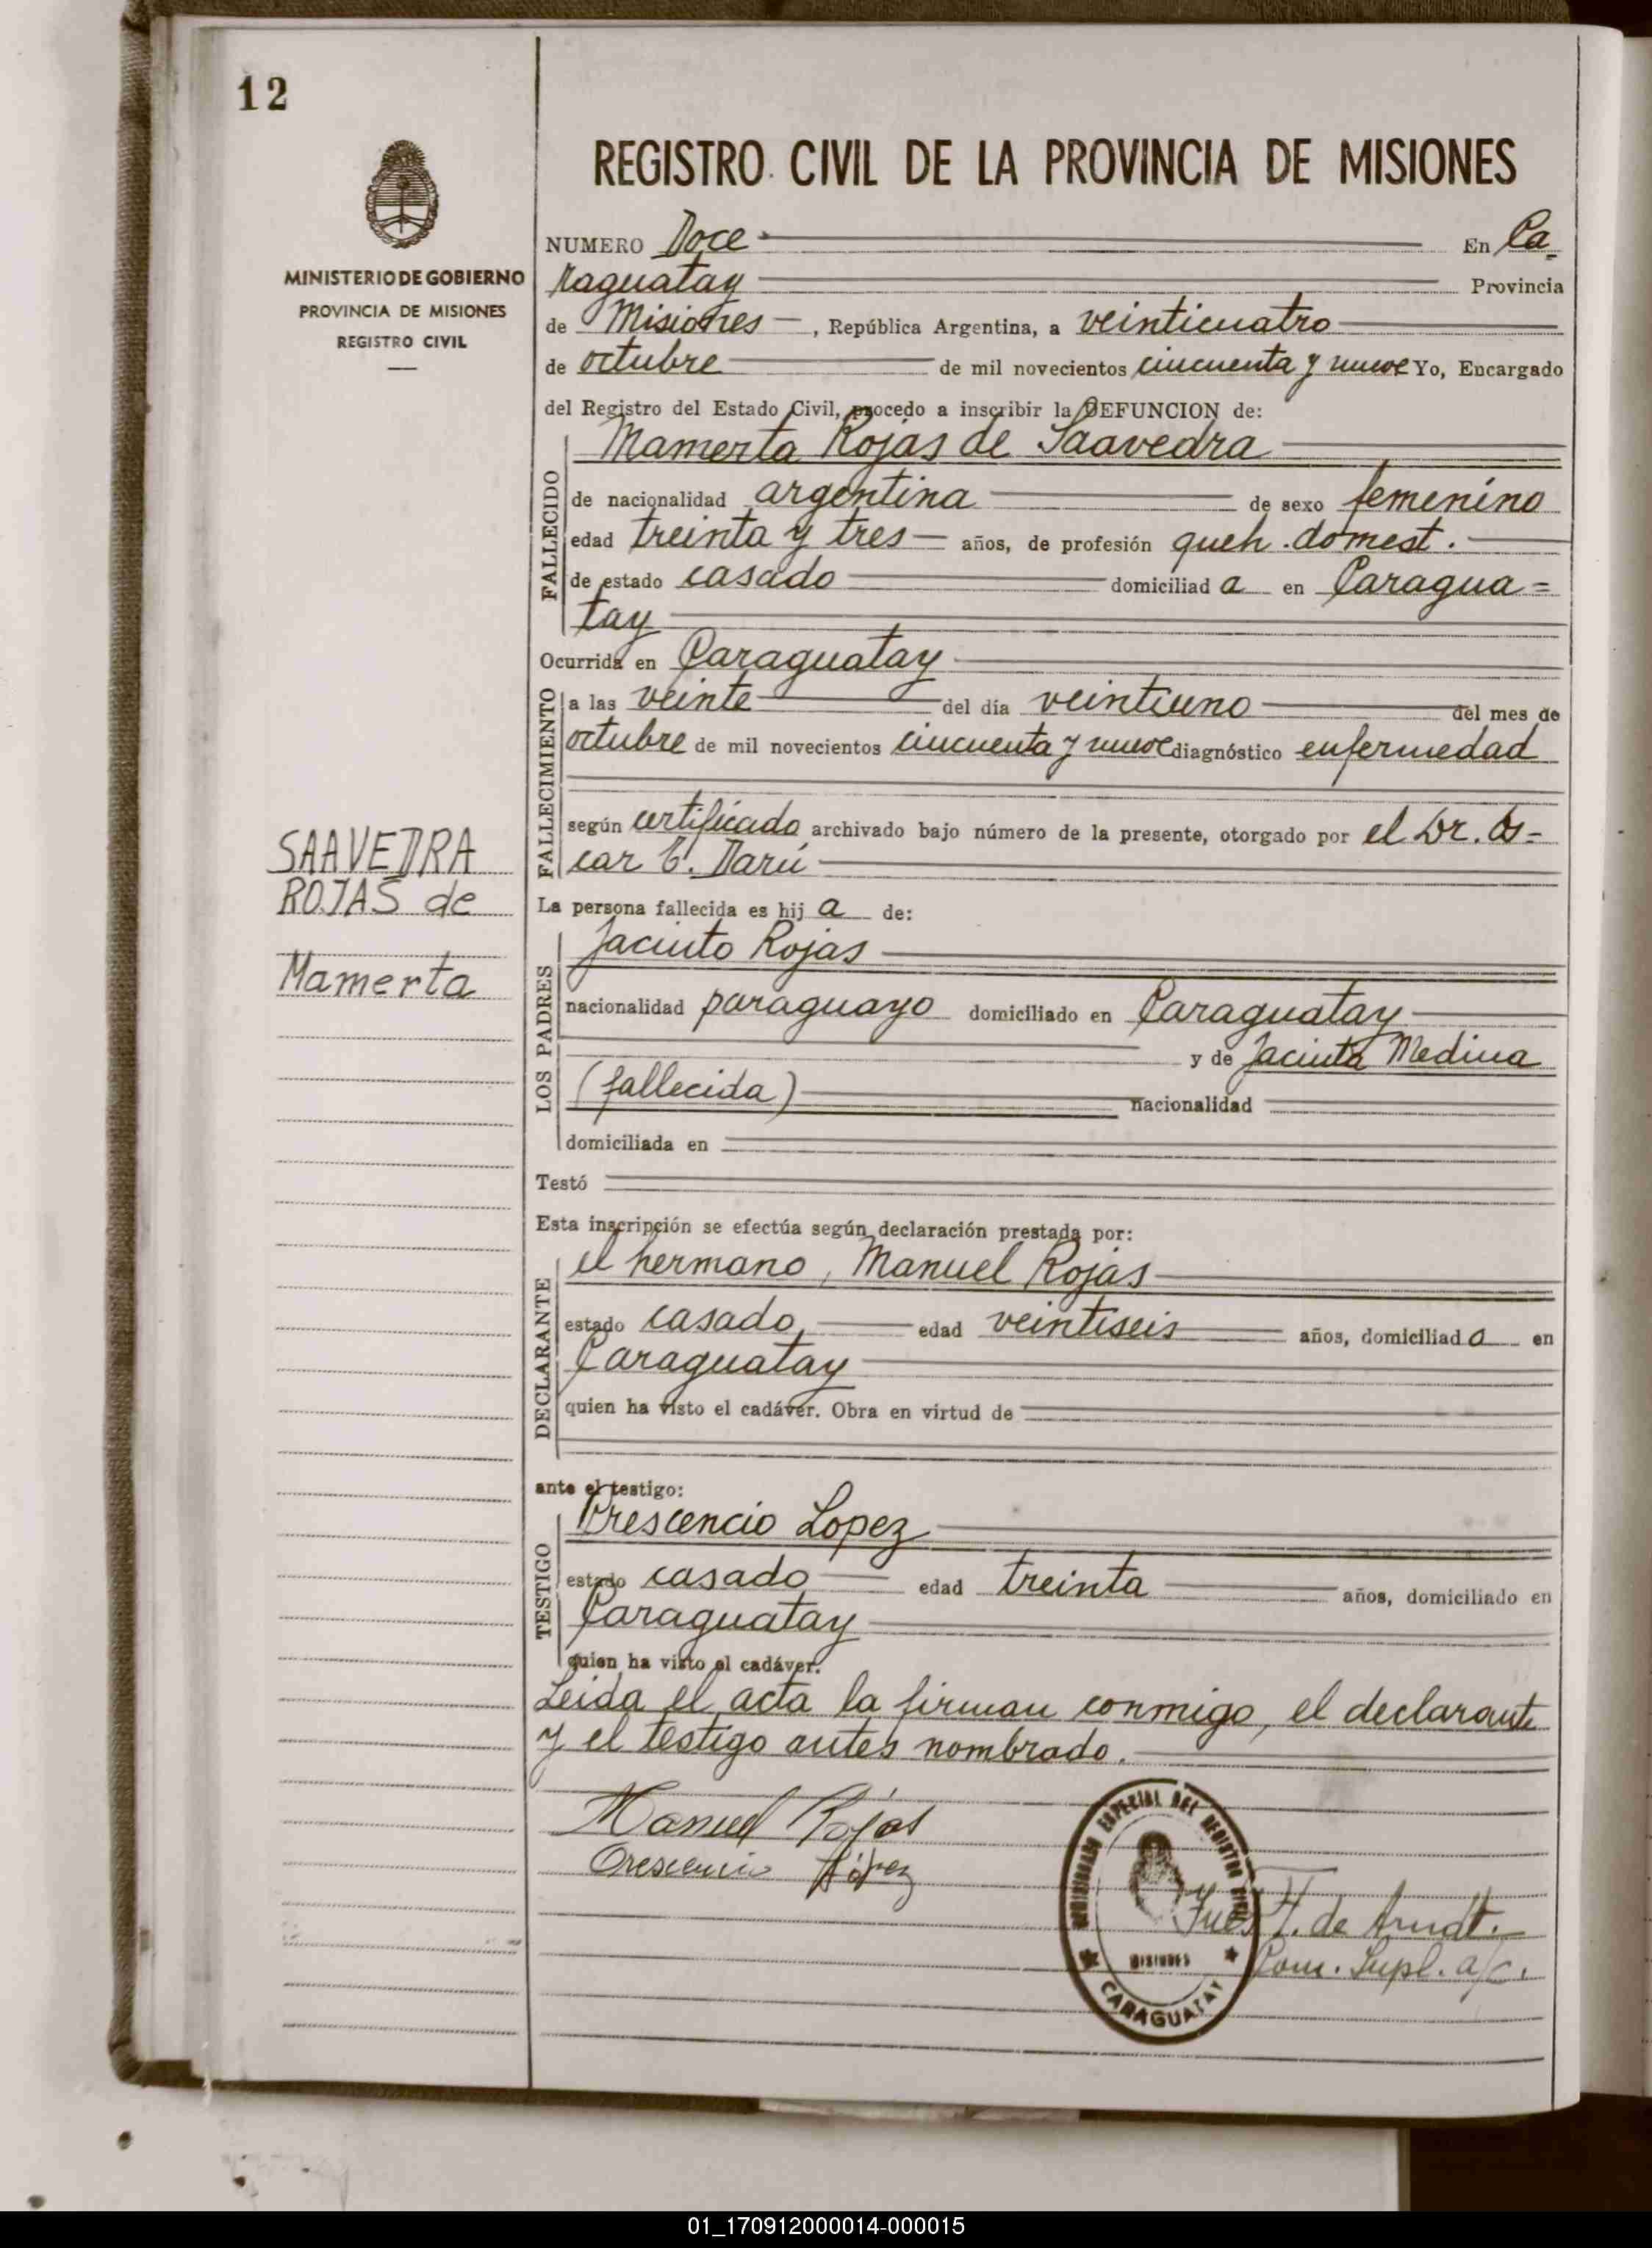 12
MINISTERIO DE GOBIERNO
PROVINCIA DE MISIONES
REGISTRO CIVIL
SAAVEDRA
ROJAS de
Mamerta
REGISTRO CIVIL DE LA PROVINCIA DE MISIONES
NUMERO Doce En Ca
raguatay Provincia
de Misiones, República Argentina, a veinticuatro
de octubre de mil novecientos cincuenta y nueve Yo, Encargado
del Registro del Estado Civil, procedo a inscribir la DEFUNCION de:
FALLECIDO
Mamerta Rojas de Saavedra
de nacionalidad argentina de sexo femenino
edad treinta y tres años, de profesión queh. domest.
de estado casado domiciliad a en Caragua=
tay
Ocurrida en Caraguatay
FALLECIMIENTO
a las veinte del día veintiuno del mes de
octubre de mil novecientos cincuenta y nueve diagnóstico enfermedad
según certificado archivado bajo número de la presente, otorgado por el Dr. Os=
car C. Darú
La persona fallecida es hij a de:
LOS PADRES
Jacinto Rojas
nacionalidad paraguayo domiciliado en Caraguatay
y de Jacinta Medina
(fallecida) nacionalidad
domiciliada en
Testó
Esta inscripción se efectúa según declaración prestada por:
DECLARANTE
el hermano, Manuel Rojas
estado casado, edad veintiseis años, domiciliad o en
Caraguatay
quien ha visto el cadáver. Obra en virtud de
ante el testigo:
TESTIGO
Crescencio Lopez
estado casado edad treinta años, domiciliado en
Caraguatay
quien ha visto el cadáver.
Leida el acta la firman conmigo, el declarante
y el testigo antes nombrado.
Manuel Rojas
Crescencio López
ESPECIAL DEL REGISTRO CIVIL
MISIONES
CARAGUATAY
F. de Arndt.
Com. Supl. a/c.
01_170912000014-000015